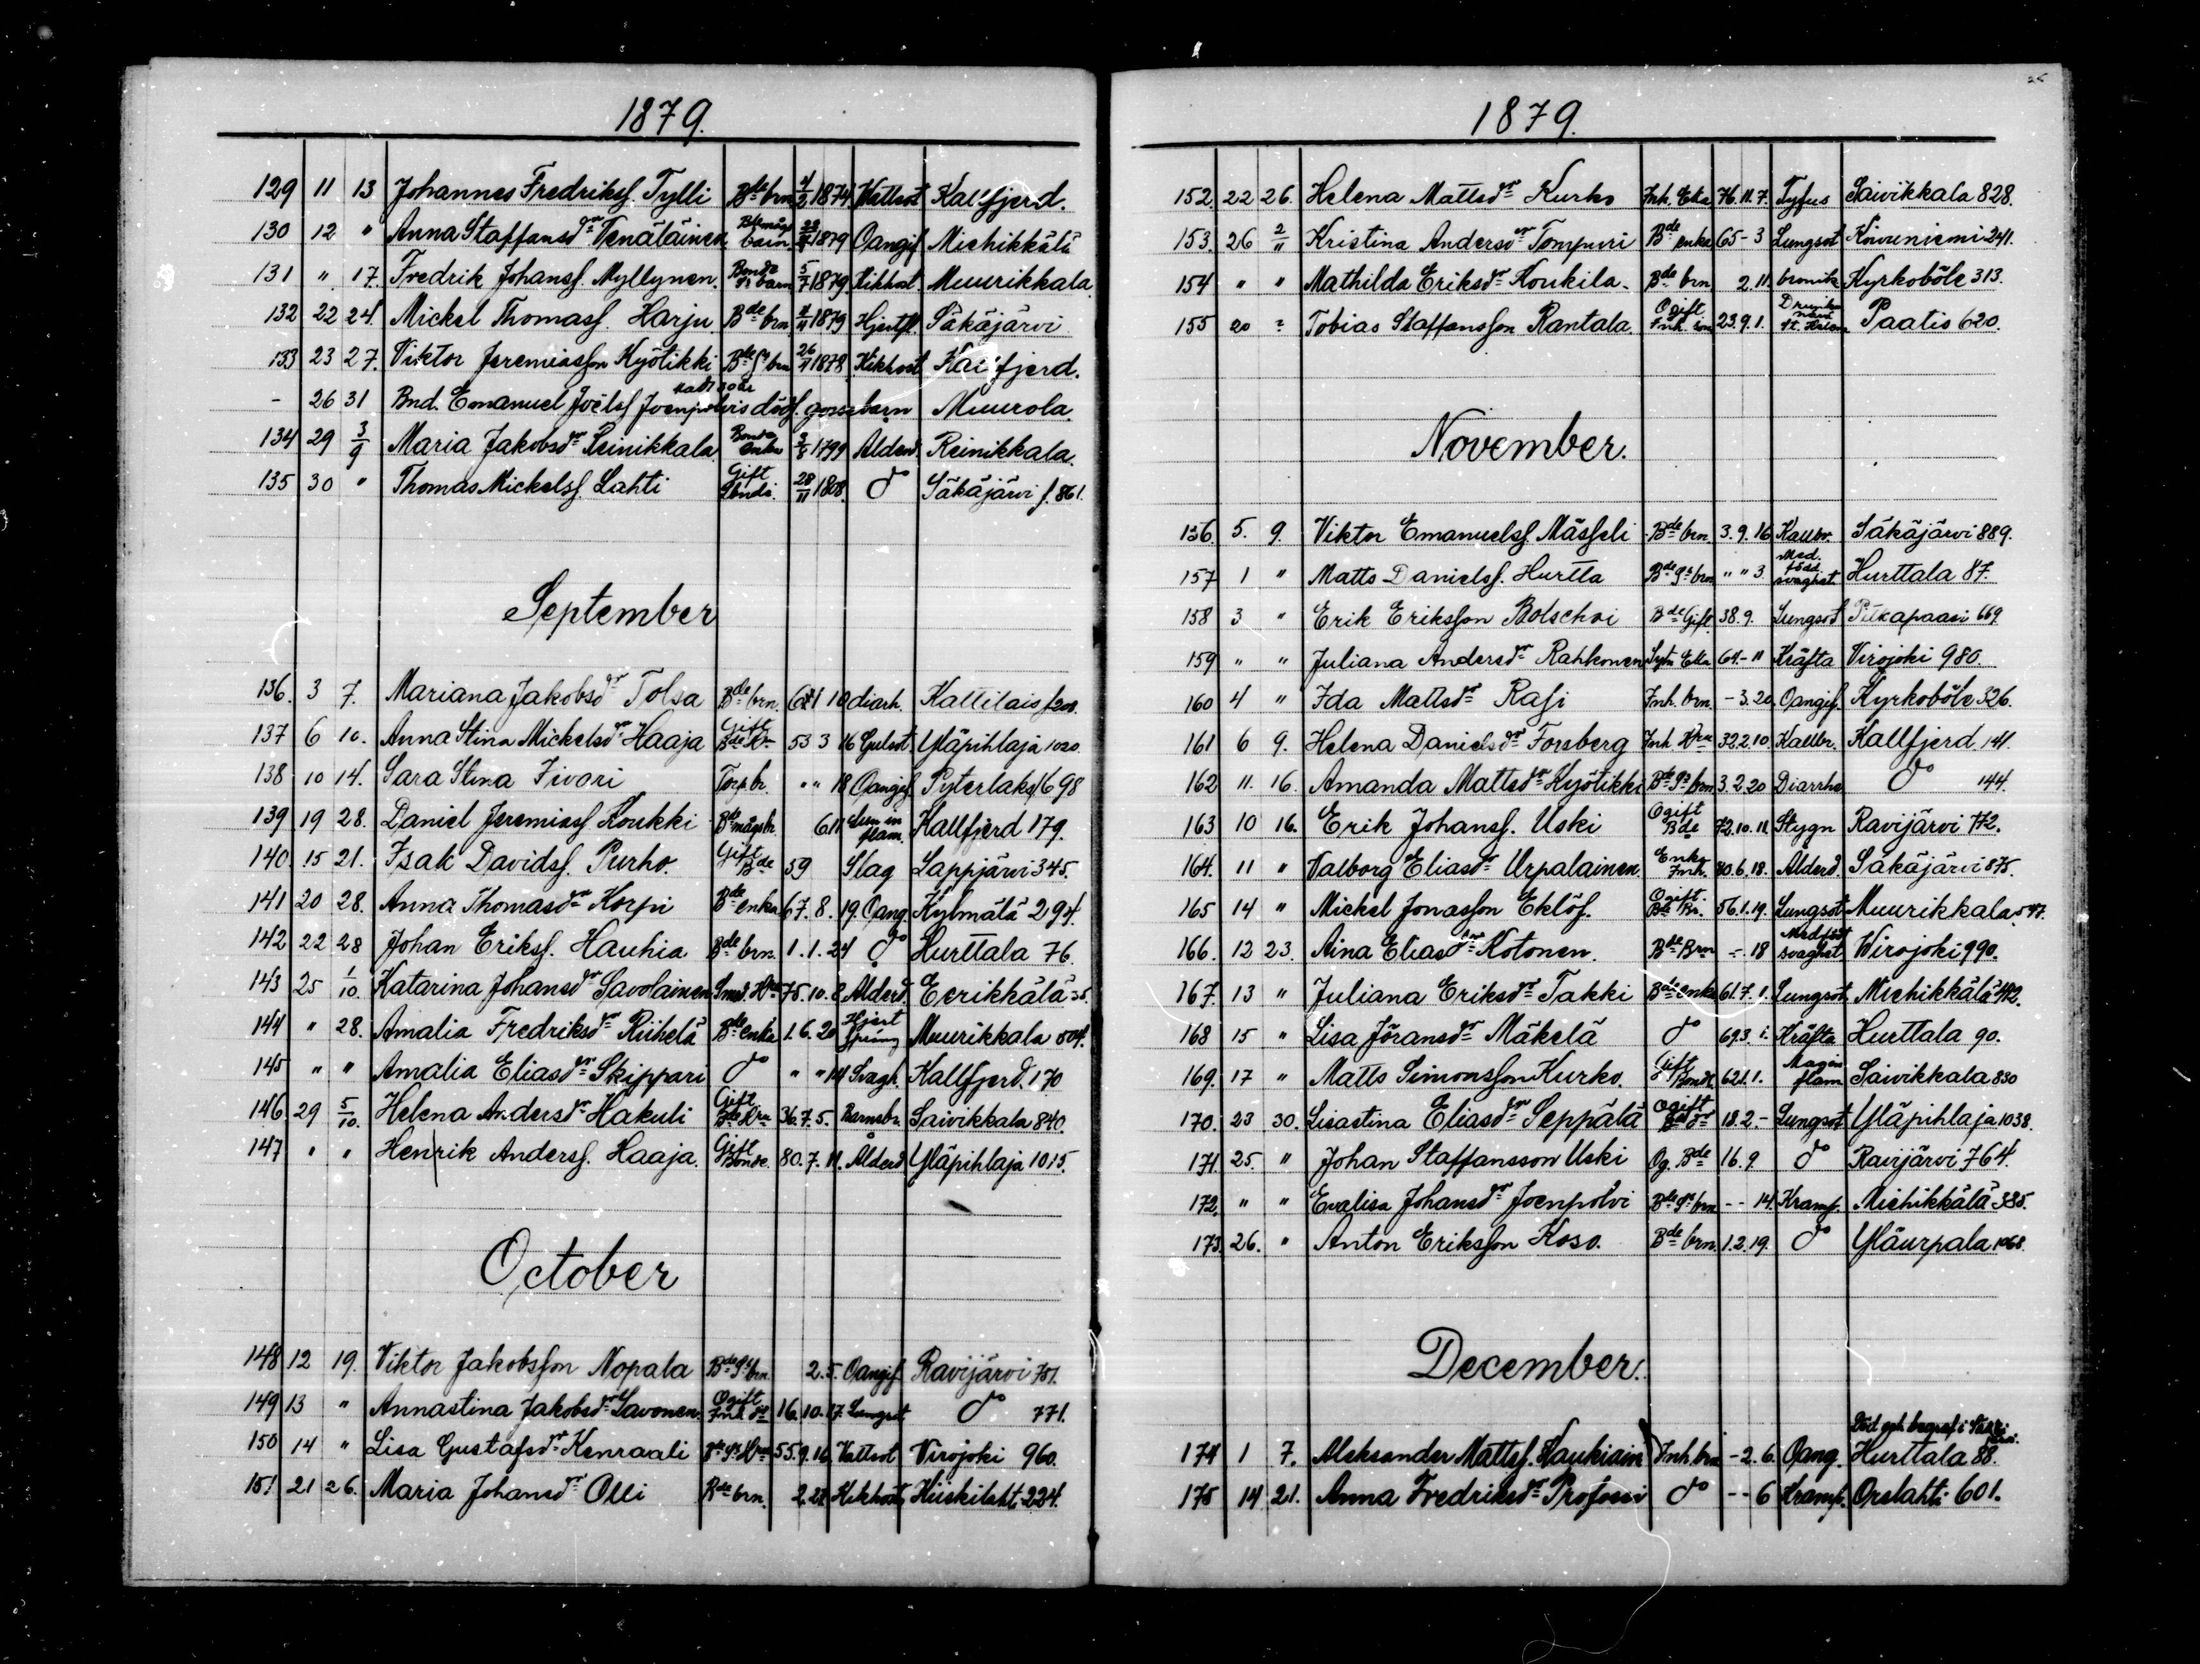 1879.
129 11 13 Johannes Fredriksf. Tylli Bde brn 1874 Vattsot Kallfjerd.
130 12 " Anna Staffansdr Venäläinen Bde mågs barn 1879 Oangif Miehikkälä
131 " 17. Fredrik Johansf. Myllynen. Bonde barn 5/7 1879 Kikhost Muurikkala
132 22 24. Mickel Thomasf. Harju Bde brn 1879 Hjertf. Säkäjärvi
133 23 27. Viktor Jeremiasson Kyötikki Bde Ss brn 1878 Kikhost Kallfjerd.
- 26 31 Bnd. Emanuel Joëlsf Joenpolvis dödf. gossebarn Muurola.
134 29 3/9 Maria Jakobsdr Reinikkala Bonde enka 1799 Ålderd. Reinikkala.
135 30 " Thomas Mickelsf Lahti Gift 28/11 1808. do Säkäjärvi f. 861.
September
136. 3 7. Mariana Jakobsdr Tolsa Bde brn. 10 diarh. Kattilais 1201.
137 6 10. Anna Stina Mickelsdr Haaja Gift Bde Hu 53 3 16 Gulsot Yläpihlaja 1020.
138 10 14. Sara Stina Fivari Torp.br. " " 18 Oangif Pyterlaks 1698
139 19 28. Daniel Jeremiasf Koukki Bde mågsbr. 6 11 Lun in flam. Kallfjerd 179.
140 15 21. Isak Davidsf. Purho. Gift Bde 59 Slag Lappjärvi 345.
141 20 28. Anna Thomasdr Korpi Bde enka 67. 8. 19. Oang. Kylmälä 294.
142 22 28 Johan Eriksf. Hauhia Bde brn. 1. 1. 24 do Hurttala 76.
143 25 1/10. Katarina Johansdr Savolainen Smed. Hu 75. 10. 8. Ålderd. Eerikkälä 35.
144 " 28. Amalia Fredriksdr Riihelä Bde enka 1. 6. 20 Hjert Muurikkala 504.
145 " " Amalia Eliasdr Skippari do " " 14 Svagh. Kallfjerd. 170
146. 29 5/10. Helena Andersdr Hakuli Gift Bde Hu 36. 7. 5. Barnsbr. Saivikkala 840.
147 " " Henrik Andersf. Haaja. Gift Bonde. 80. 7. 11. Ålderd Yläpihlaja 1015.
October
148 12 19. Viktor Jakobsson Nopala Bde Ss brn. 2. 5. Oangif. Ravijärvi 751.
149 13 " Annastina Jakobsdr Savonen. Ogift Inh dr 16. 10. 17. Lungsot do 771.
150 14 " Lisa Gustafsdr Kenraali 55. 9. 16 Vattsot Virojoki 960.
151 21 26. Maria Johansdr Olli Bde brn. 2. 22 Kikhost Hiiskilaht 224.
1879.
152. 22 26. Helena Mattsdr Kurko Inh. Eka 76. 11. 7. Tyfus Saivikkala 828.
153. 26 2/11 Kristina Andersdr Tompuri Bde enka 65 - 3 Lungsot Kouuniemi 241.
154 " " Mathilda Eriksdr Koukila. Bde brn 2. 11. bronkit Kyrkoböle 313.
155 20 " Tobias Staffansson Rantala. Ogift Inh. son 23. 9. 1. Paatis 620.
November.
156. 5. 9. Viktor Emanuelsf Mässeli Bde brn. 3. 9. 16 Kallbr. Säkäjärvi 889.
157 1 " Matts Danielsf. Hurtta Bde Ss brn " " 3. Med. född svaghet Hurttala 87.
158 3 " Erik Eriksson Bolschoi Bde Gift. 38. 9. Lungsot Pitkäpaasi 669
159 " " Juliana Andersdr Rahkonen Sytn Eka 64. - 11 Kräfta Virojoki 980.
160 4 " Ida Mattsdr Rasi Inh. brn. - 3. 20. Oangif. Kyrkoböle 326.
161 6 9. Helena Danielsdr Forsberg Inh Hu 32. 2. 10. Kallbr. Kallfjerd 141.
162 11. 16. Amanda Mattsdr Kyötikki Bde Ss brn 3. 2. 20 Diarrhe do 144.
163 10 16. Erik Johansf. Uski Ogift Bde 72. 10. 11. Stygn Ravijärvi 772.
164. 11 " Valborg Eliasdr Urpalainen. Enka Inh. 80. 6. 18. Ålderd. Säkäjärvi 875.
165 14 " Mickel Jonasson Eklöf. Ogift 56. 1. 19. Lungsot Muurikkala 547.
166. 12 23. Aina Eliasdr Kotonen. Bde Brn - 18 Medföd svaghet Wirojoki 990.
167. 13 " Juliana Eriksdr Takki Bde enka 61. 7. 1. Lungsot. Miehikkälä 412.
168 15 " Lisa Jöransdr Mäkelä do 69. 3. 1. Kräfta Hurttala 90.
169. 17 " Matts Simonsson Kurko. Gift Bonde. 62. 1. 1. Magin flam Saivikkala 830
170. 23 30. Lisastina Eliasdr Seppälä Ogift 18. 2. - Lungsot Yläpihlaja 1038.
171. 25. " Johan Staffansson Uski Og. Bde 16. 9. do Ravijärvi 764.
172. " " Evalisa Johansdr Joenpolvi Bde Ss brn - - 14. Kramp. Miehikkälä 385.
173. 26. " Anton Eriksson Koso. Bde brn. 1. 2. 19. do Yläurpala 1068.
December.
Död och begraf i Säkkijärvi.
174 1 7. Aleksander Mattsf. Kaukiain Inh. brn - 2. 6. Oang. Hurttala 88.
175 14 21. Anna Fredriksdr Profossi do - - 6 Kramp. Orslahti 601.